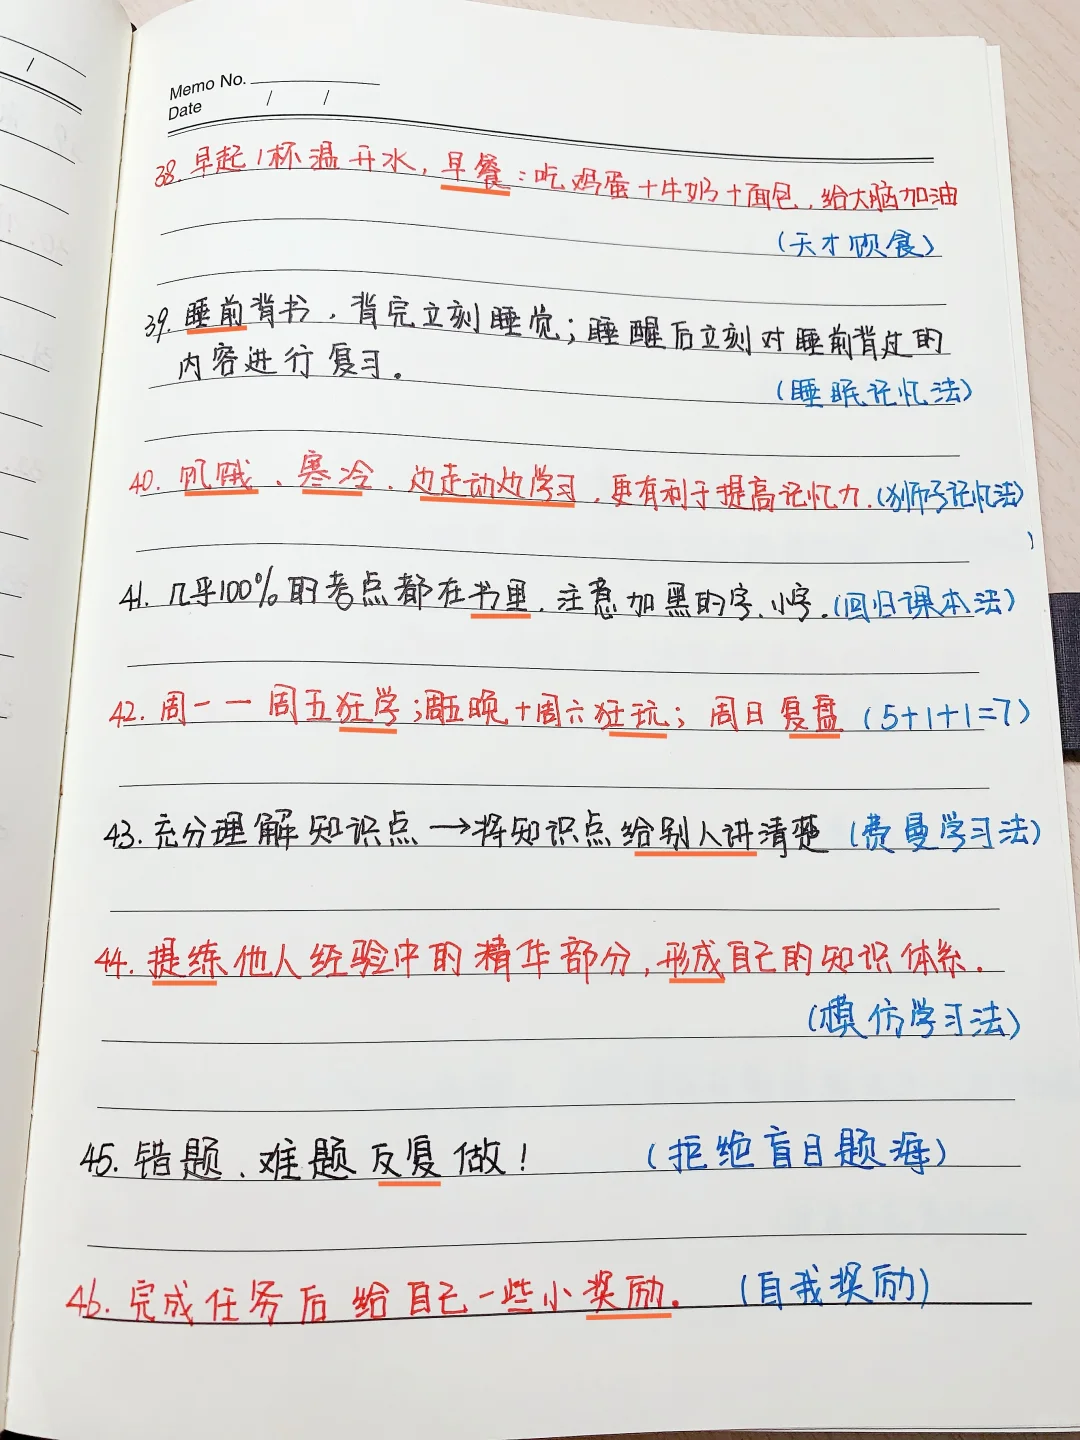 Memo No.
Date / /
38. 早起1杯温开水,早餐:吃鸡蛋+牛奶+面包,给大脑加油
(天才饮食)
39. 睡前背书,背完立刻睡觉;睡醒后立刻对睡前背过的
内容进行复习。
(睡眠记忆法)
40. 饥饿、寒冷、边走动边学习,更有利于提高记忆力.(狮子记忆法)
41. 几乎100%的考点都在书里.注意加黑的字、小字.(回归课本法)
42. 周一一周五狂学;周五晚+周六狂玩;周日复盘(5+1+1=7)
43. 充分理解知识点→将知识点给别人讲清楚(费曼学习法)
44. 提练他人经验中的精华部分,形成自己的知识体系.
(模仿学习法)
45. 错题、难题反复做!(拒绝盲目题海)
46. 完成任务后给自己一些小奖励.(自我奖励)